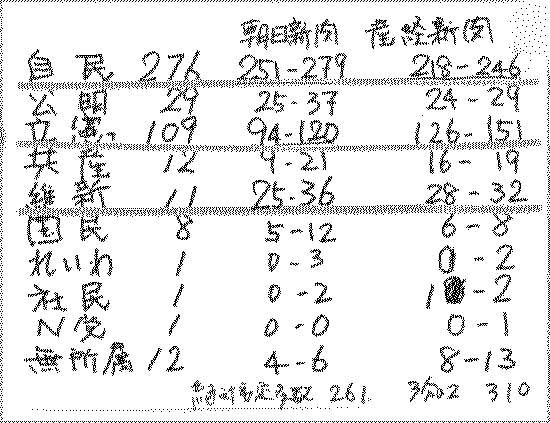 朝日新聞 産経新聞
自民 276 251-279 218-246
公明 29 25-37 24-29
立憲 109 94-120 126-151
共産 12 9-21 16-19
維新 11 25-36 28-32
国民 8 5-12 6-8
れいわ 1 0-3 0-2
社民 1 0-2 1 -2
N党 1 0-0 0-1
無所属 12 4-6 8-13
絶対安定多数 261 3分の2 310